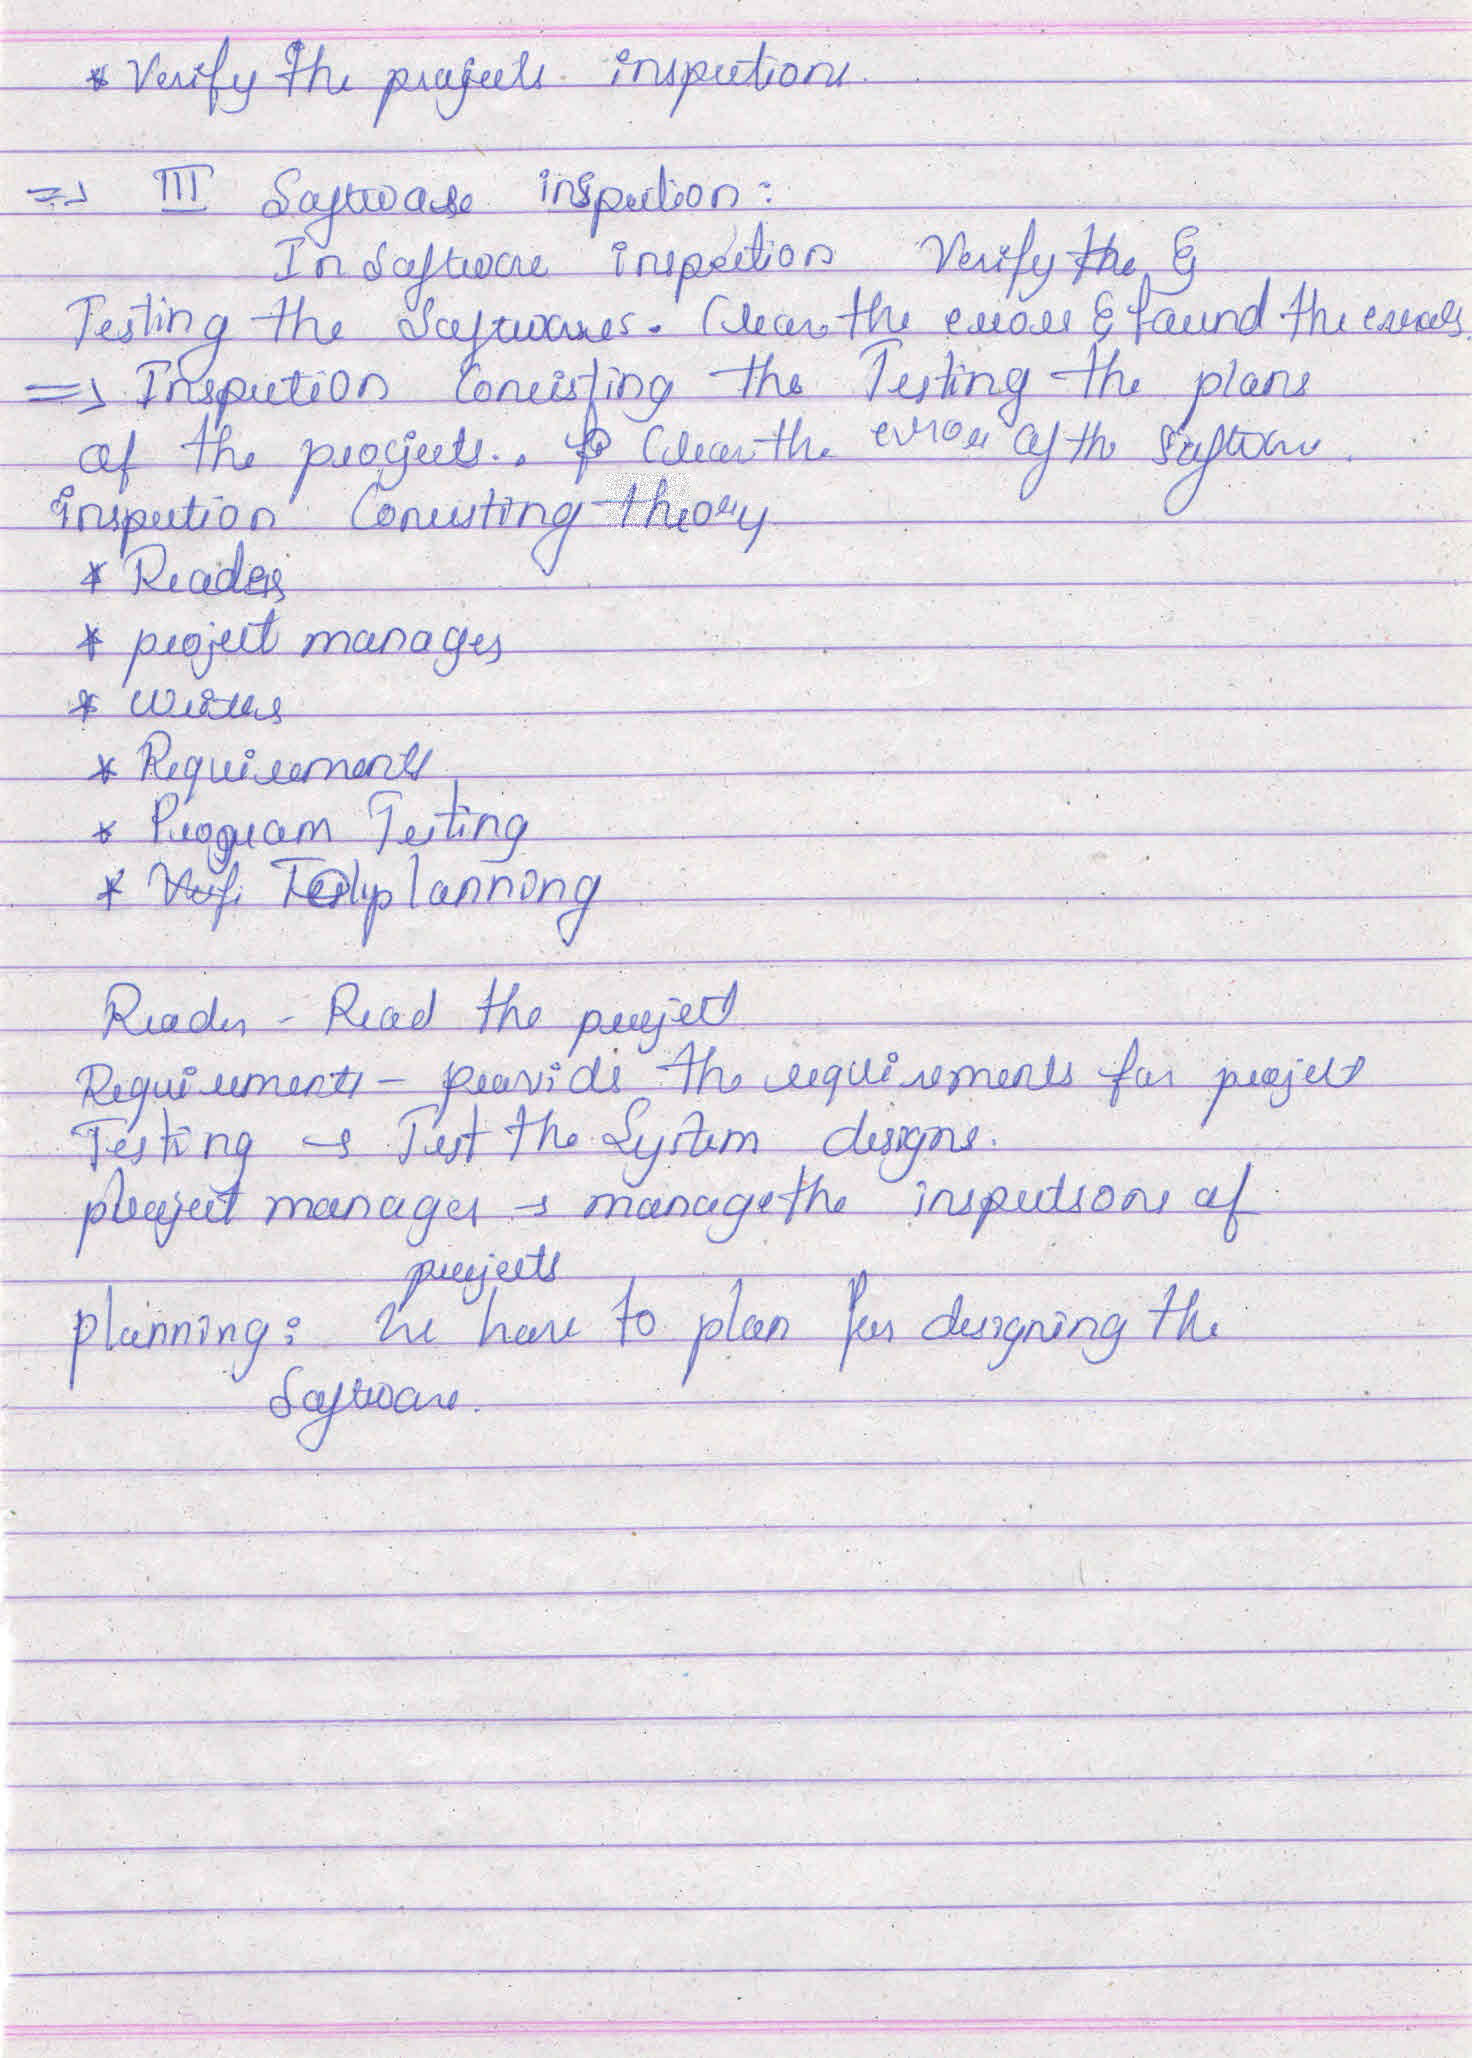 * Verify the projects inspections.
=> III Software inspection:
In Software inspection Verify the &
Testing the Softwares. Clear the errors & found the errors.
=> Inspection Consisting the Testing the plans
of the projects.. Clear the error of the Software.
inspection Consisting theory
* Readers
* project manages
* Writers
* Requirements
* Program Testing
* planning
Reader - Read the project
Requirements - provide the requirements for project
Testing → Test the System designs.
project manager → manage the inspections of
projects
planning: we have to plan for designing the
Software.